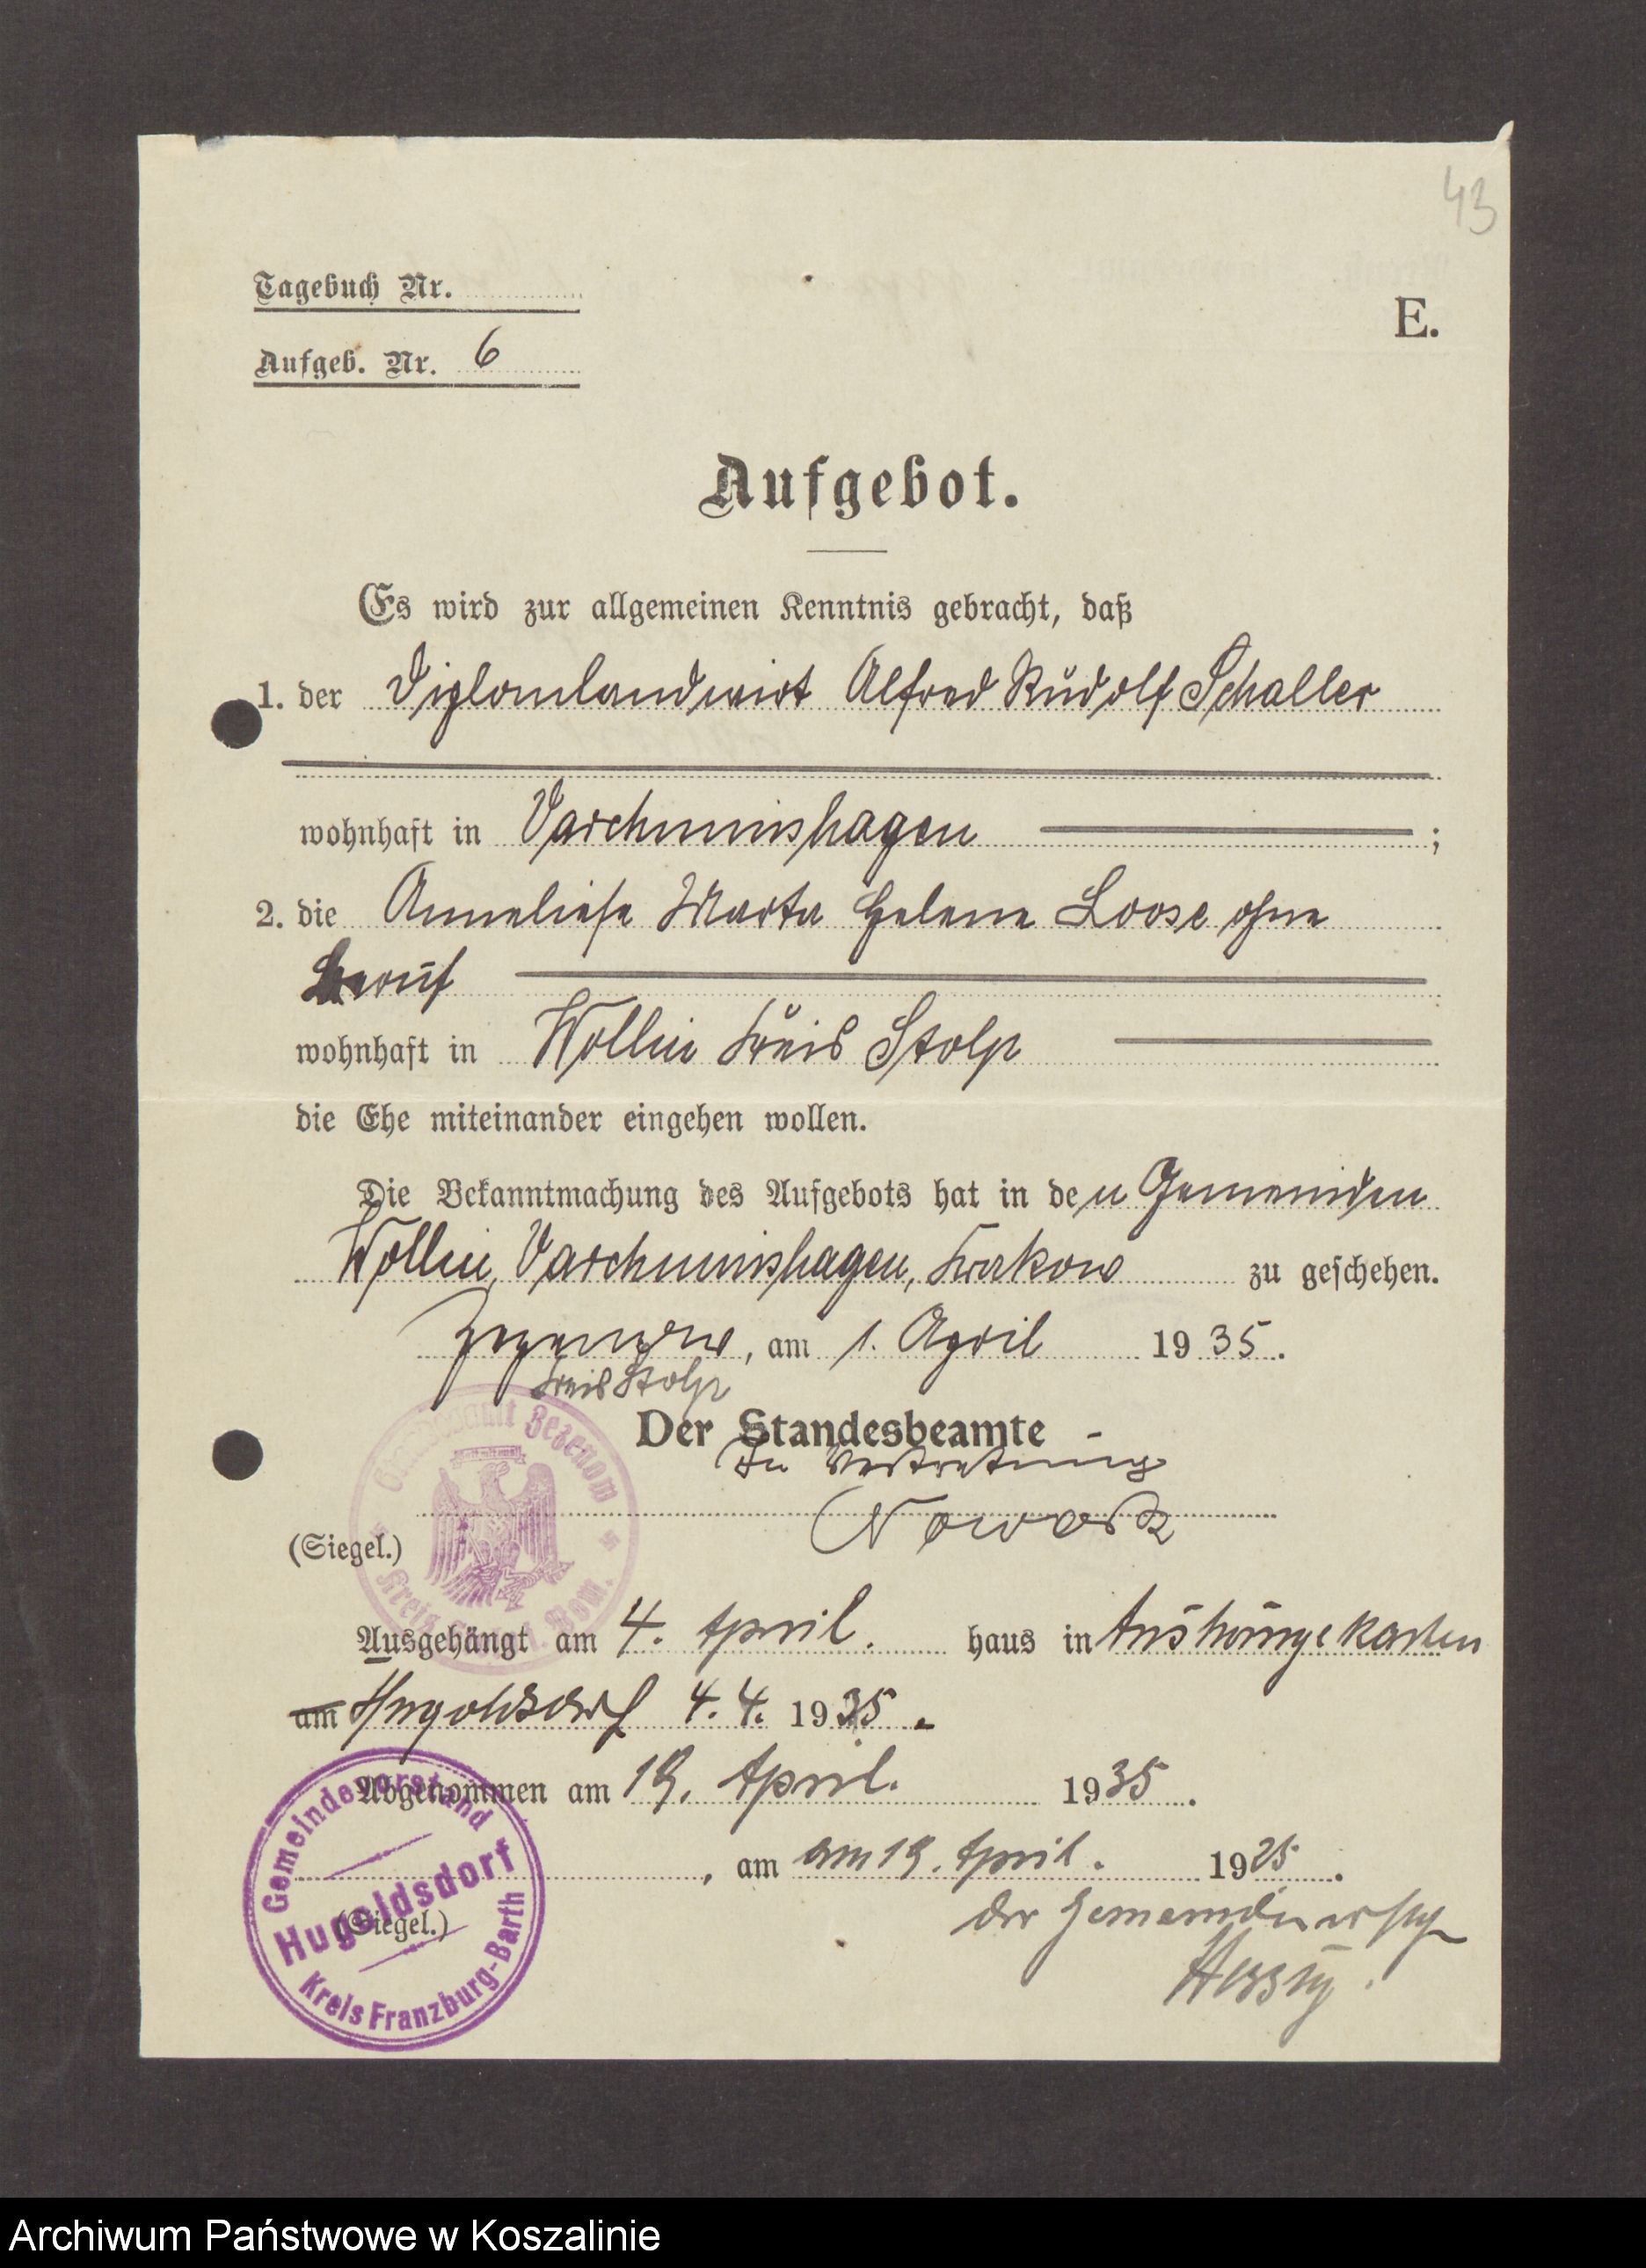 43
Tagebuch Nr.
E.
Aufgeb. Nr. 6
Aufgebot.
Es wird zur allgemeinen Kenntnis gebracht, daß
1. der Diplomlandwirt Alfred Rudolf Schaller
wohnhaft in Varchminshagen ;
2. die Anneliese Marta Helene Loose ohne
Beruf
wohnhaft in Wollin Kreis Stolp
die Ehe miteinander eingehen wollen.
Die Bekanntmachung des Aufgebots hat in den Gemeinden
Wollin, Varchminshagen, Krakow zu geschehen.
Zezenow, am 1. April 1935.
Kreis Stolp
Der Standesbeamte
In Vertretung
Nowack
Standesamt Zezenow
Kreis Stolp i. Pom.
(Siegel.)
Ausgehängt am 4. April. haus in Aushängekasten
am Hugoldsdorf 4.4. 1935.
Abgenommen am 19. April. 1935.
, am am 19. April. 1935.
(Siegel.)
der Gemeindevorsteher
Gemeindevorstand
Hugoldsdorf
Kreis Franzburg-Barth
Archiwum Państwowe w Koszalinie